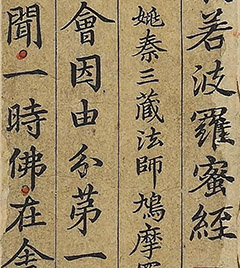 若波羅蜜經
姚秦三藏法師鳩摩
會因由分苐一
聞一時佛在舍